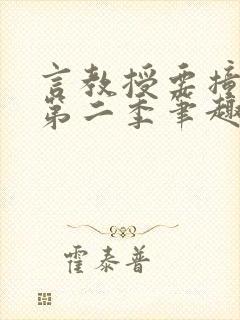 言教授要撞
第二季笔趣
霍泰普